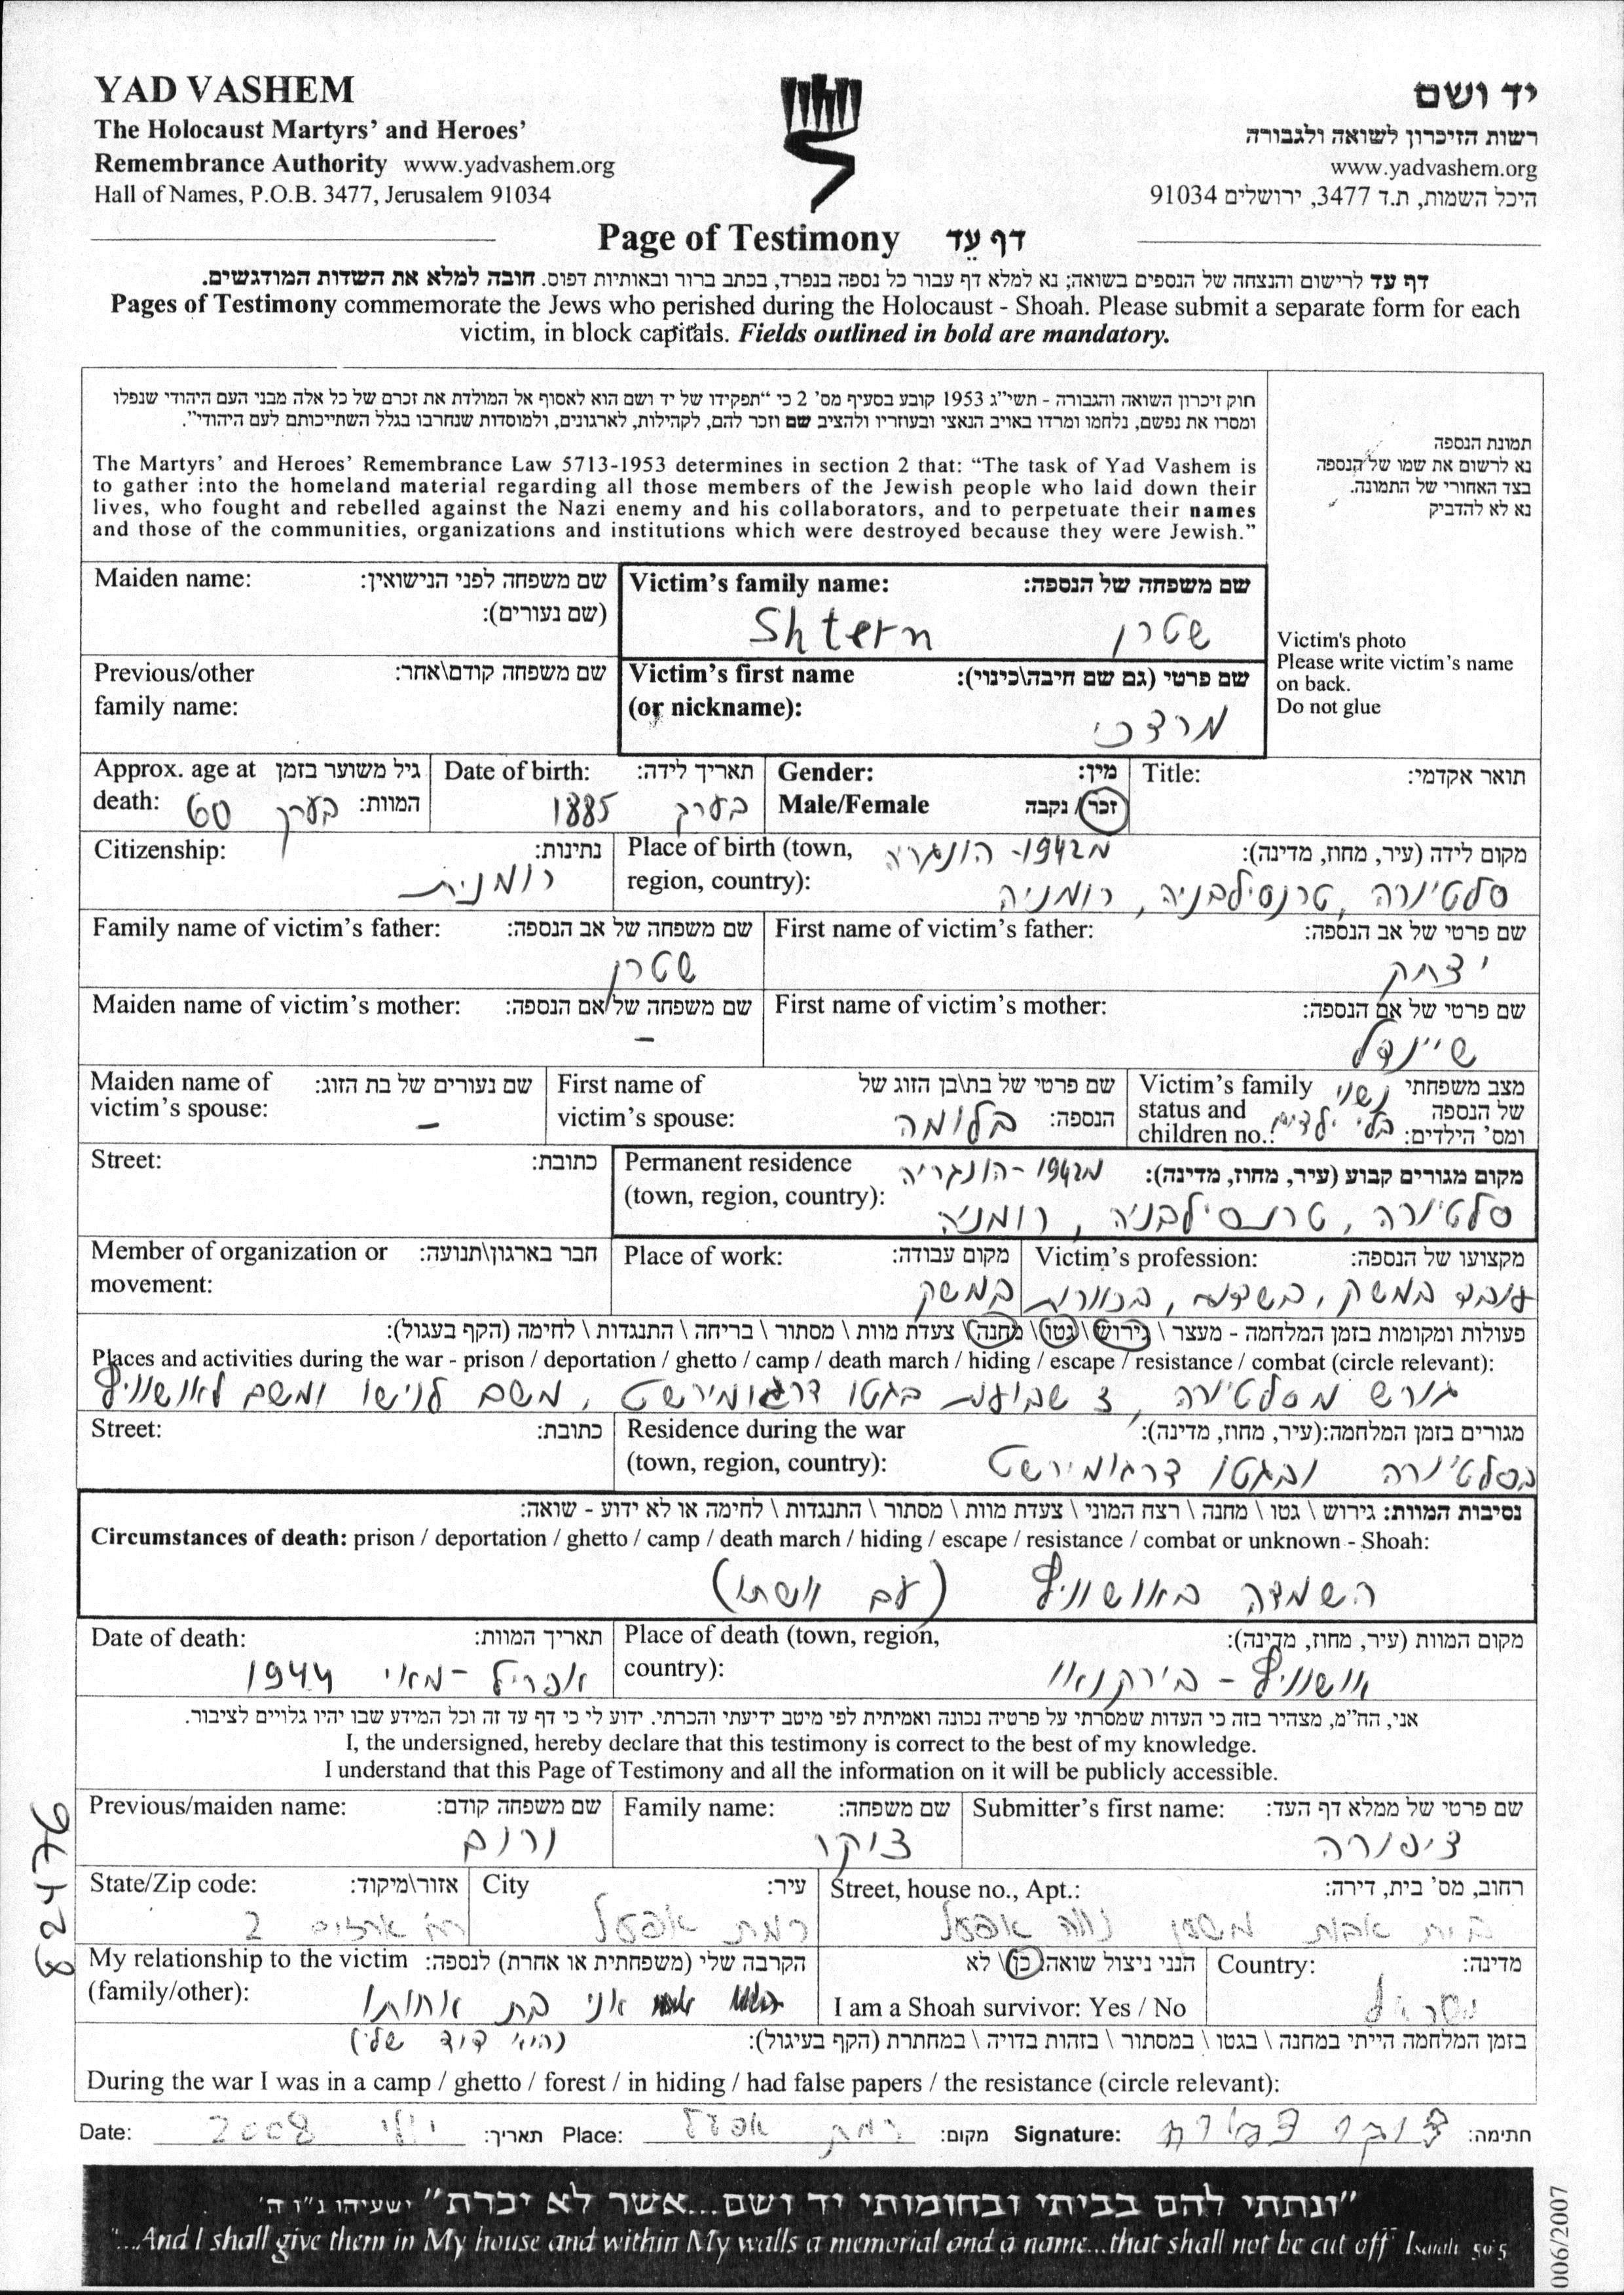 YAD VASHEM
The Holocaust Martyrs' and Heroes'
Remembrance Authority www.yadvashem.org
Hall of Names, P.O.B. 3477, Jerusalem 91034
יד ושם
רשות הזיכרון לשואה ולגבורה
www.yadvashem.org
היכל השמות, ת.ד 3477, ירושלים 91034
Page of Testimony דף עֵד
דף עד לרישום והנצחה של הנספים בשואה; נא למלא דף עבור כל נספה בנפרד, בכתב ברור ובאותיות דפוס. חובה למלא את השדות המודגשים.
Pages of Testimony commemorate the Jews who perished during the Holocaust - Shoah. Please submit a separate form for each
victim, in block capitals. Fields outlined in bold are mandatory.
חוק זיכרון השואה והגבורה - תשי"ג 1953 קובע בסעיף מס' 2 כי "תפקידו של יד ושם הוא לאסוף אל המולדת את זכרם של כל אלה מבני העם היהודי שנפלו
ומסרו את נפשם, נלחמו ומרדו באויב הנאצי ובעוזריו ולהציב שם וזכר להם, לקהילות, לארגונים, ולמוסדות שנחרבו בגלל השתייכותם לעם היהודי".
The Martyrs' and Heroes' Remembrance Law 5713-1953 determines in section 2 that: "The task of Yad Vashem is
to gather into the homeland material regarding all those members of the Jewish people who laid down their
lives, who fought and rebelled against the Nazi enemy and his collaborators, and to perpetuate their names
and those of the communities, organizations and institutions which were destroyed because they were Jewish."
תמונת הנספה
נא לרשום את שמו של הנספה
בצד האחורי של התמונה.
נא לא להדביק
Victim's photo
Please write victim's name
on back.
Do not glue
Maiden name: שם משפחה לפני הנישואין:
(שם נעורים):
Victim's family name: שם משפחה של הנספה:
Shtern שטרן
Previous/other שם משפחה קודם\אחר:
family name:
Victim's first name שם פרטי (גם שם חיבה\כינוי):
(or nickname):
מרדכי
Approx. age at גיל משוער בזמן
death: 60 בערך המוות:
Date of birth: תאריך לידה:
בערך 1885
Gender: מין:
Male/Female זכר / נקבה
Title: תואר אקדמי:
Citizenship: נתינות:
רומנית
Place of birth (town, מקום לידה (עיר, מחוז, מדינה):
region, country):
מ1942- הונגריה
סלטינרה, טרנסילבניה, רומניה
Family name of victim's father: שם משפחה של אב הנספה:
שטרן
First name of victim's father: שם פרטי של אב הנספה:
יצחק
Maiden name of victim's mother: שם משפחה של אם הנספה:
-
First name of victim's mother: שם פרטי של אם הנספה:
שיינדל
Maiden name of שם נעורים של בת הזוג:
victim's spouse: -
First name of שם פרטי של בת\בן הזוג של
victim's spouse: בלומה הנספה:
Victim's family נשוי מצב משפחתי
status and של הנספה
children no.: בלי ילדים ומס' הילדים:
Street: כתובת:
Permanent residence מקום מגורים קבוע (עיר, מחוז, מדינה):
(town, region, country): מ1942-הונגריה
סלטינרה, טרנסילבניה, רומניה
Member of organization or חבר בארגון\תנועה:
movement:
Place of work: מקום עבודה:
במשק
Victim's profession: מקצועו של הנספה:
עובד במשק, בשדות, בכוורות
פעולות ומקומות בזמן המלחמה - מעצר \ גירוש \ גטו \ מחנה \ צעדת מוות \ מסתור \ בריחה \ התנגדות \ לחימה (הקף בעגול):
Places and activities during the war - prison / deportation / ghetto / camp / death march / hiding / escape / resistance / combat (circle relevant):
גורש מסלטינרה, 3 שבועות בגטו דרגומירשט, משם לוישו ומשם לאושוויץ
Street: כתובת:
Residence during the war מגורים בזמן המלחמה:(עיר, מחוז, מדינה):
(town, region, country):
בסלטינרה ובגטו דרגומירשט
נסיבות המוות: גירוש \ גטו \ מחנה \ רצח המוני \ צעדת מוות \ מסתור \ התנגדות \ לחימה או לא ידוע - שואה:
Circumstances of death: prison / deportation / ghetto / camp / death march / hiding / escape / resistance / combat or unknown - Shoah:
השמדה באושוויץ (עם אשתו)
Date of death: תאריך המוות:
אפריל-מאי 1944
Place of death (town, region, מקום המוות (עיר, מחוז, מדינה):
country):
אושוויץ - בירקנאו
אני, הח"מ, מצהיר בזה כי העדות שמסרתי על פרטיה נכונה ואמיתית לפי מיטב ידיעתי והכרתי. ידוע לי כי דף עד זה וכל המידע שבו יהיו גלויים לציבור.
I, the undersigned, hereby declare that this testimony is correct to the best of my knowledge.
I understand that this Page of Testimony and all the information on it will be publicly accessible.
Previous/maiden name: שם משפחה קודם:
ורום
Family name: שם משפחה:
צוקר
Submitter's first name: שם פרטי של ממלא דף העד:
ציפורה
State/Zip code: אזור\מיקוד:
2
City עיר:
רמת אפעל
Street, house no., Apt.: רחוב, מס' בית, דירה:
בית אבות משען נווה אפעל
My relationship to the victim הקרבה שלי (משפחתית או אחרת) לנספה:
(family/other): אני בת אחותו
(הוא דוד שלי)
הנני ניצול שואה: כן \ לא
I am a Shoah survivor: Yes / No
Country: מדינה:
ישראל
בזמן המלחמה הייתי במחנה \ בגטו \ במסתור \ בזהות בדויה \ במחתרת (הקף בעיגול):
During the war I was in a camp / ghetto / forest / in hiding / had false papers / the resistance (circle relevant):
Date: יולי 2008 תאריך: Place: רמת אפעל מקום: Signature: צוקר ציפורה חתימה:
"ונתתי להם בביתי ובחומותי יד ושם...אשר לא יכרת" ישעיהו נ"ו ה'
"...And I shall give them in My house and within My walls a memorial and a name...that shall not be cut off" Isaiah 56:5
82476
006/2007